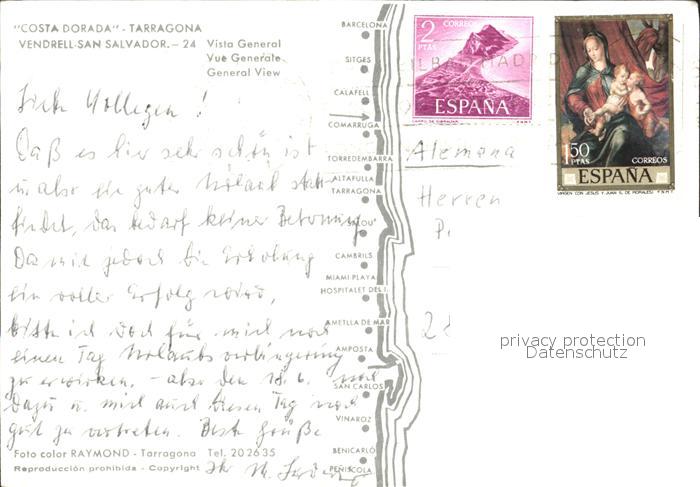 "COSTA DORADA" - TARRAGONA
VENDRELL-SAN SALVADOR. - 24
Vista General
Vue Generale
General View
Liebe Kollegen!
Daß es hier sehr schön ist
u. also ein guter Urlaub statt-
findet, das bedarf keiner Betonung
Damit jedoch die Erholung
ein voller Erfolg wird,
bitte ich doch für mich noch
einen Tag Urlaubsverlängerung
zu erwirken, - also den 18. 6. noch
dazu u. mich auch diesen Tag noch
gut zu vertreten. Beste Grüße
Ihr
Foto color RAYMOND - Tarragona Tel. 202635
Reproducción prohibida - Copyright
BARCELONA
SITGES
CALAFELL
COMARRUGA
TORREDEMBARRA
ALTAFULLA
TARRAGONA
SALOU
CAMBRILS
MIAMI PLAYA
HOSPITALET DEL I.
AMETLLA DE MAR
AMPOSTA
SAN CARLOS
VINAROZ
BENICARLÓ
PEÑISCOLA
2
PTAS
CORREOS
ESPAÑA
PEÑON DE GIBRALTAR F.N.M.T.
1,50
PTAS
CORREOS
ESPAÑA
VIRGEN CON JESUS Y JUAN (L. DE MORALES) F.N.M.T.
Alemana
Herren
privacy protection
Datenschutz